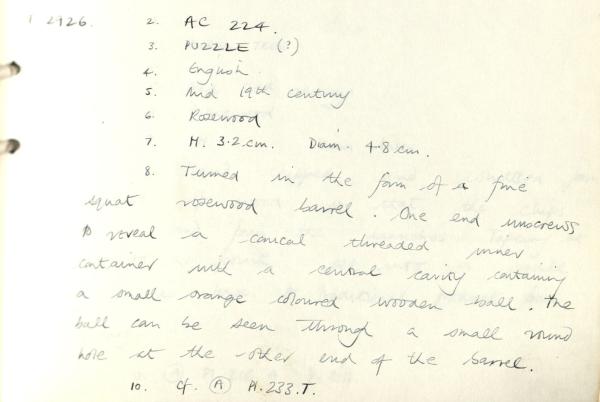 T 2926. 2. AC 224.
3. PUZZLE (?)
4. English.
5. Mid 19th century
6. Rosewood
7. H. 3.2 cm. Diam. 4.8 cm.
8. Turned in the form of a fine
squat rosewood barrel. One end unscrews
to reveal a conical threaded inner
container with a central cavity containing
a small orange coloured wooden ball. The
ball can be seen through a small round
hole at the other end of the barrel.
10. Cf. (A) Pl. 233. T.